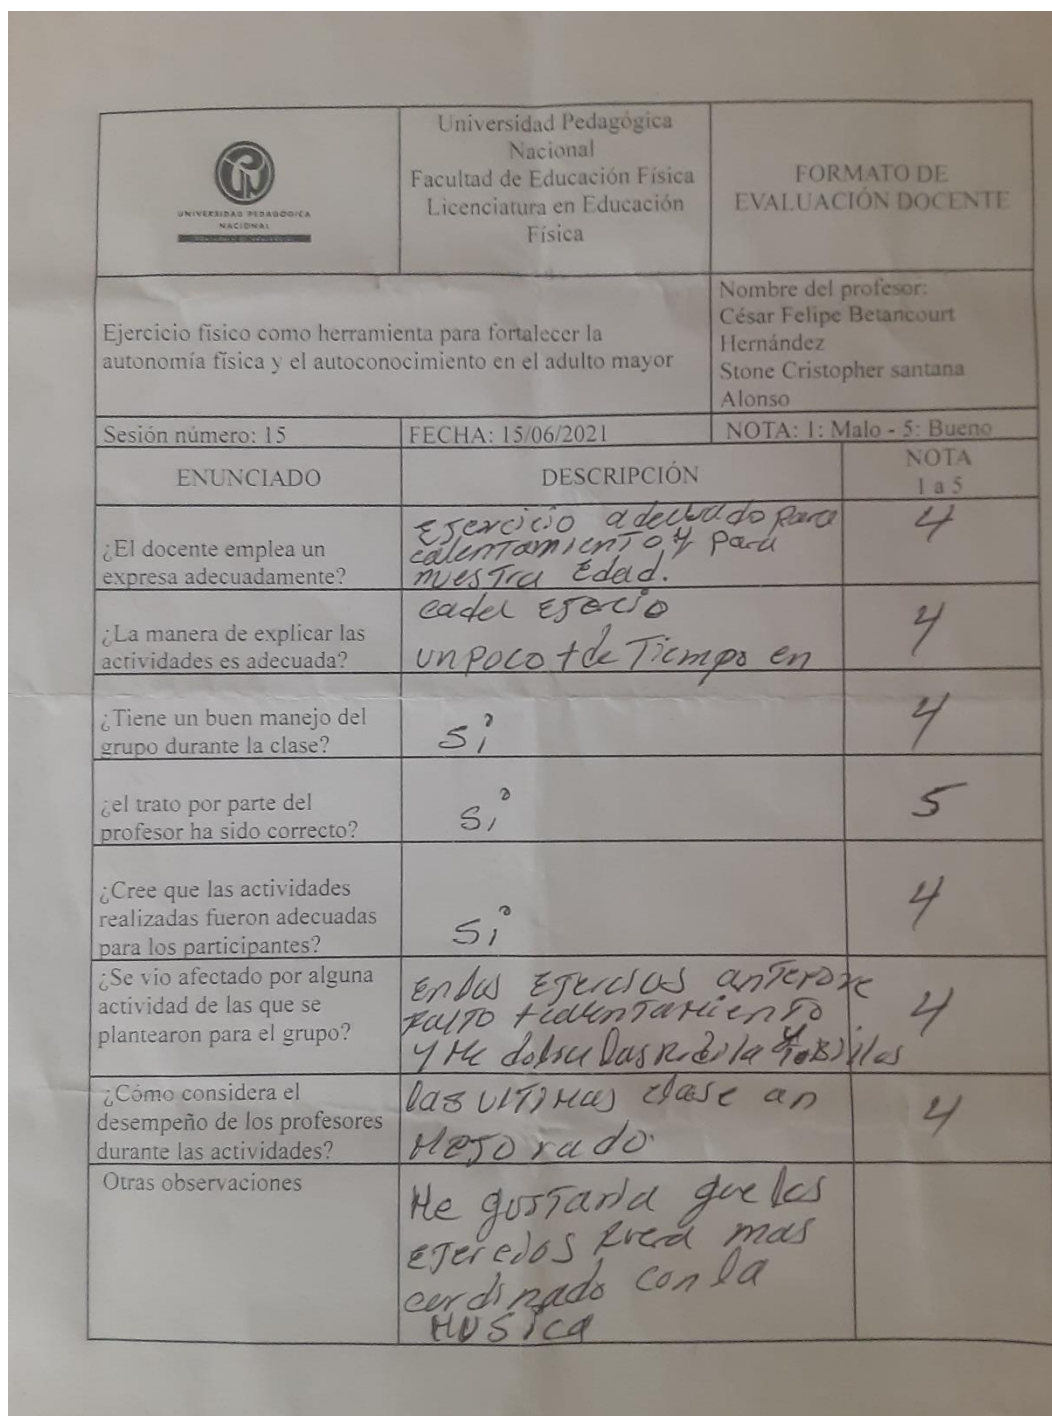 UNIVERSIDAD PEDAGÓGICA
NACIONAL
Universidad Pedagógica
Nacional
Facultad de Educación Física
Licenciatura en Educación
Física
FORMATO DE
EVALUACIÓN DOCENTE
Ejercicio físico como herramienta para fortalecer la
autonomía física y el autoconocimiento en el adulto mayor
Nombre del profesor:
César Felipe Betancourt
Hernández
Stone Cristopher santana
Alonso
Sesión número: 15
FECHA: 15/06/2021
NOTA: 1: Malo - 5: Bueno
ENUNCIADO
DESCRIPCIÓN
NOTA
1 a 5
¿El docente emplea un
expresa adecuadamente?
Ejercicio adecuado para
calentamiento, y para
nuestra Edad.
4
¿La manera de explicar las
actividades es adecuada?
Ejercio
un poco + de Tiempo en
4
¿Tiene un buen manejo del
grupo durante la clase?
si
4
¿el trato por parte del
profesor ha sido correcto?
si
5
¿Cree que las actividades
realizadas fueron adecuadas
para los participantes?
si
4
¿Se vio afectado por alguna
actividad de las que se
plantearon para el grupo?
anteriore
falto + calentamiento
y Me las y tobillas
4
¿Cómo considera el
desempeño de los profesores
durante las actividades?
las ultimas clase an
Mejorado
4
Otras observaciones
Me gustaria que los
fuera mas
cordinado con la
Musica